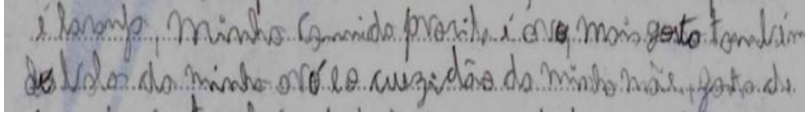 é laranja, minha comida favorita é ovo, mais gosto também
do bolo da minha avó e o cuzidão da minha mãe, gosto de